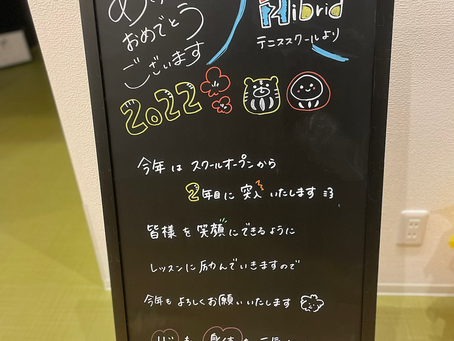 おめでとう
ございます
Hibrid
テニススクールより
2022
今年は スクールオープンから
2年目に突入いたします
皆様を笑顔にできるように
レッスンに励んでいきますので
今年もよろしくお願いいたします